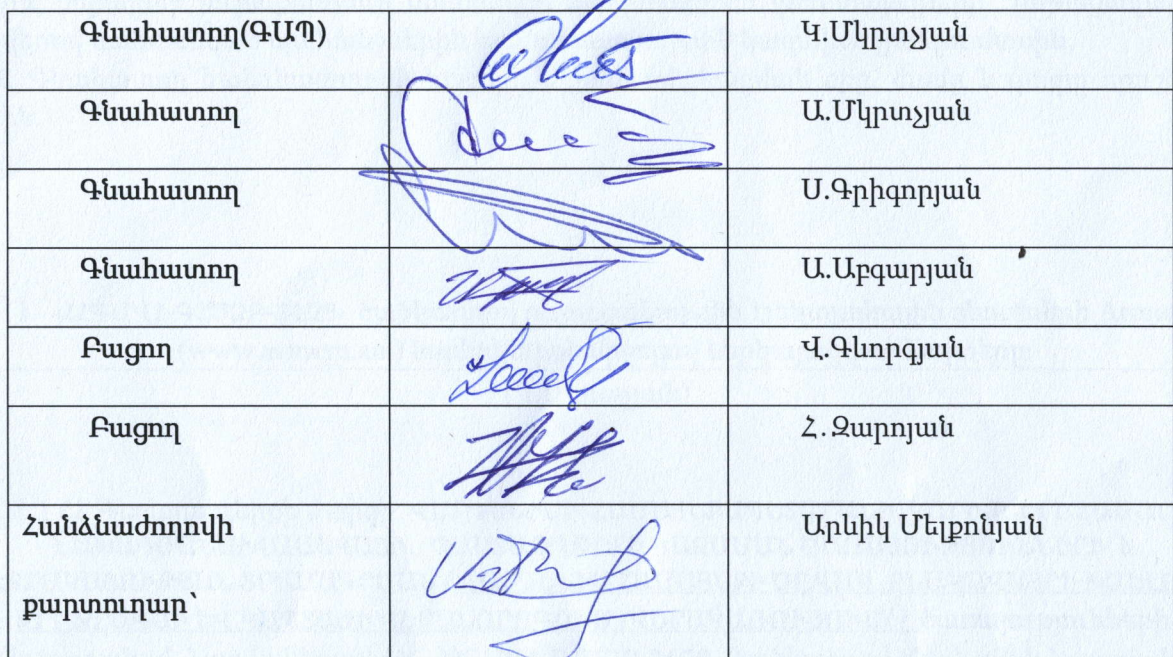 Գնահատող(ԳԱՊ) Կ.Մկրտչյան
Գնահատող Ա.Մկրտչյան
Գնահատող Ս.Գրիգորյան
Գնահատող Ա.Աբգարյան
Բացող Վ.Գևորգյան
Բացող Հ.Զարոյան
Հանձնաժողովի Արևիկ Մելքոնյան
քարտուղար՝